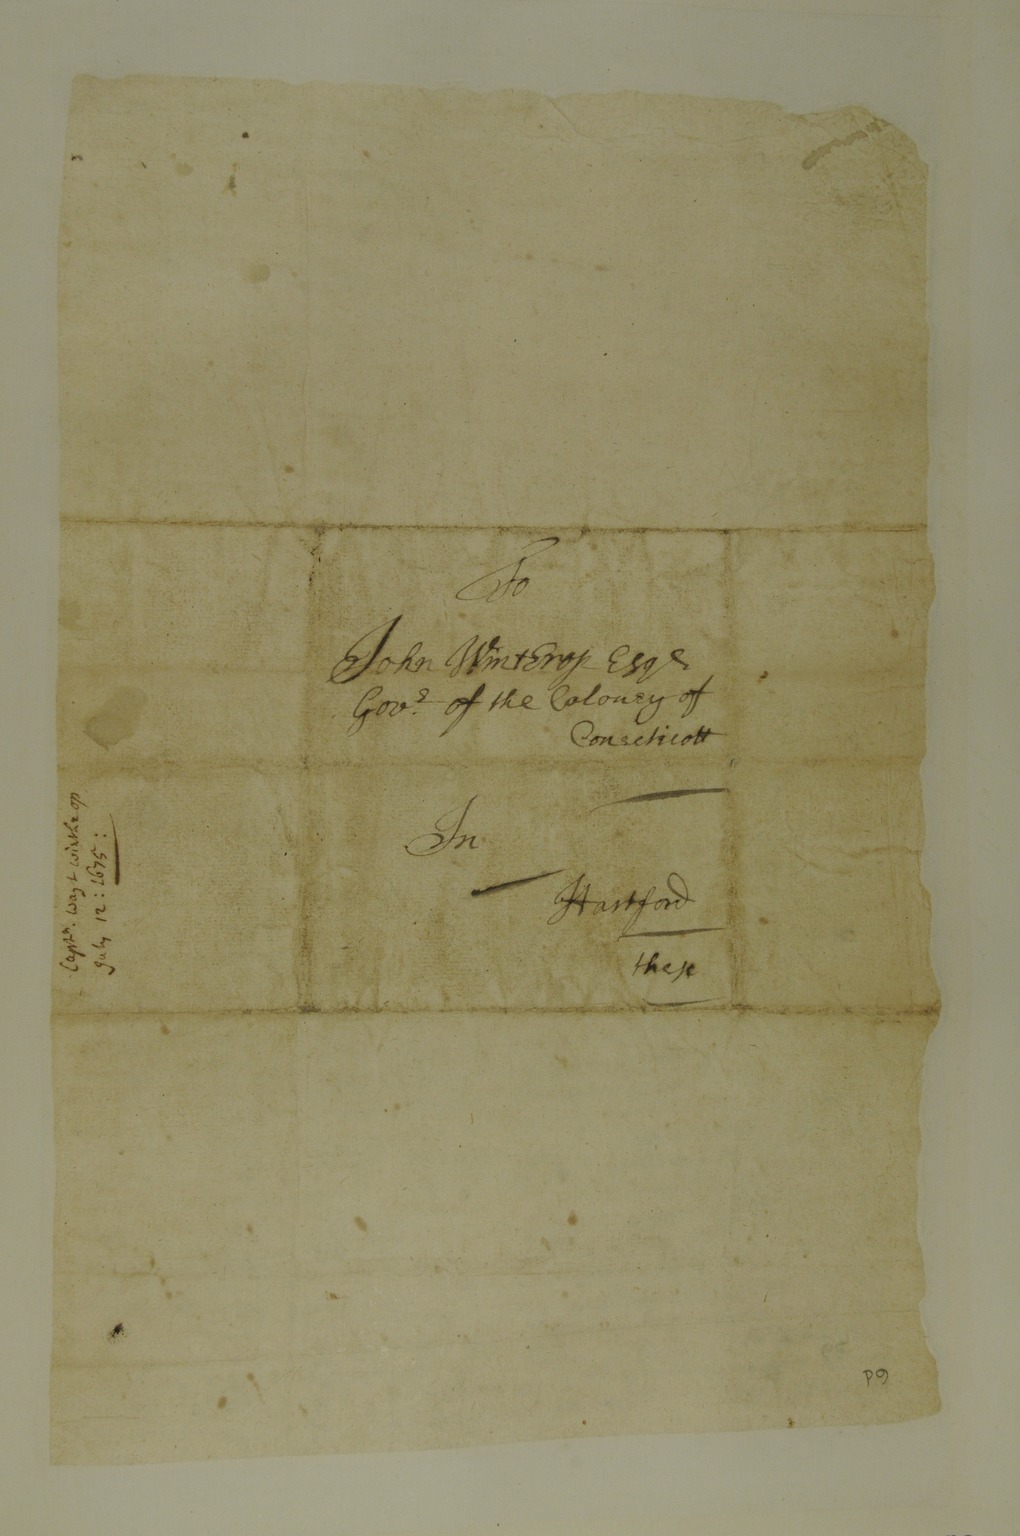 To
John Winthrop Esqr
Govr. of the Colony of
Conecticott
In
Hartford
these
Captn. wayt winthrop
July 12: 1675: